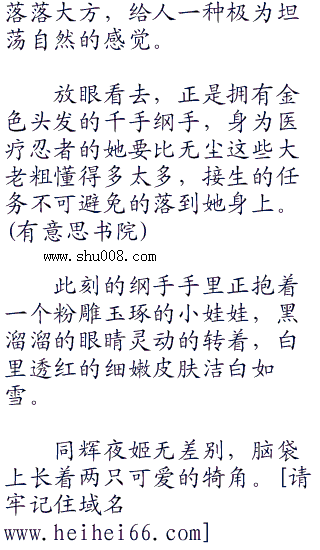 落落大方，给人一种极为坦
荡自然的感觉。
放眼看去，正是拥有金
色头发的千手纲手，身为医
疗忍者的她要比无尘这些大
老粗懂得多太多，接生的任
务不可避免的落到她身上。
(有意思书院)
www.shu008.com
此刻的纲手手里正抱着
一个粉雕玉琢的小娃娃，黑
溜溜的眼睛灵动的转着，白
里透红的细嫩皮肤洁白如
雪。
同辉夜姬无差别，脑袋
上长着两只可爱的犄角。[请
牢记住域名
www.heihei66.com]